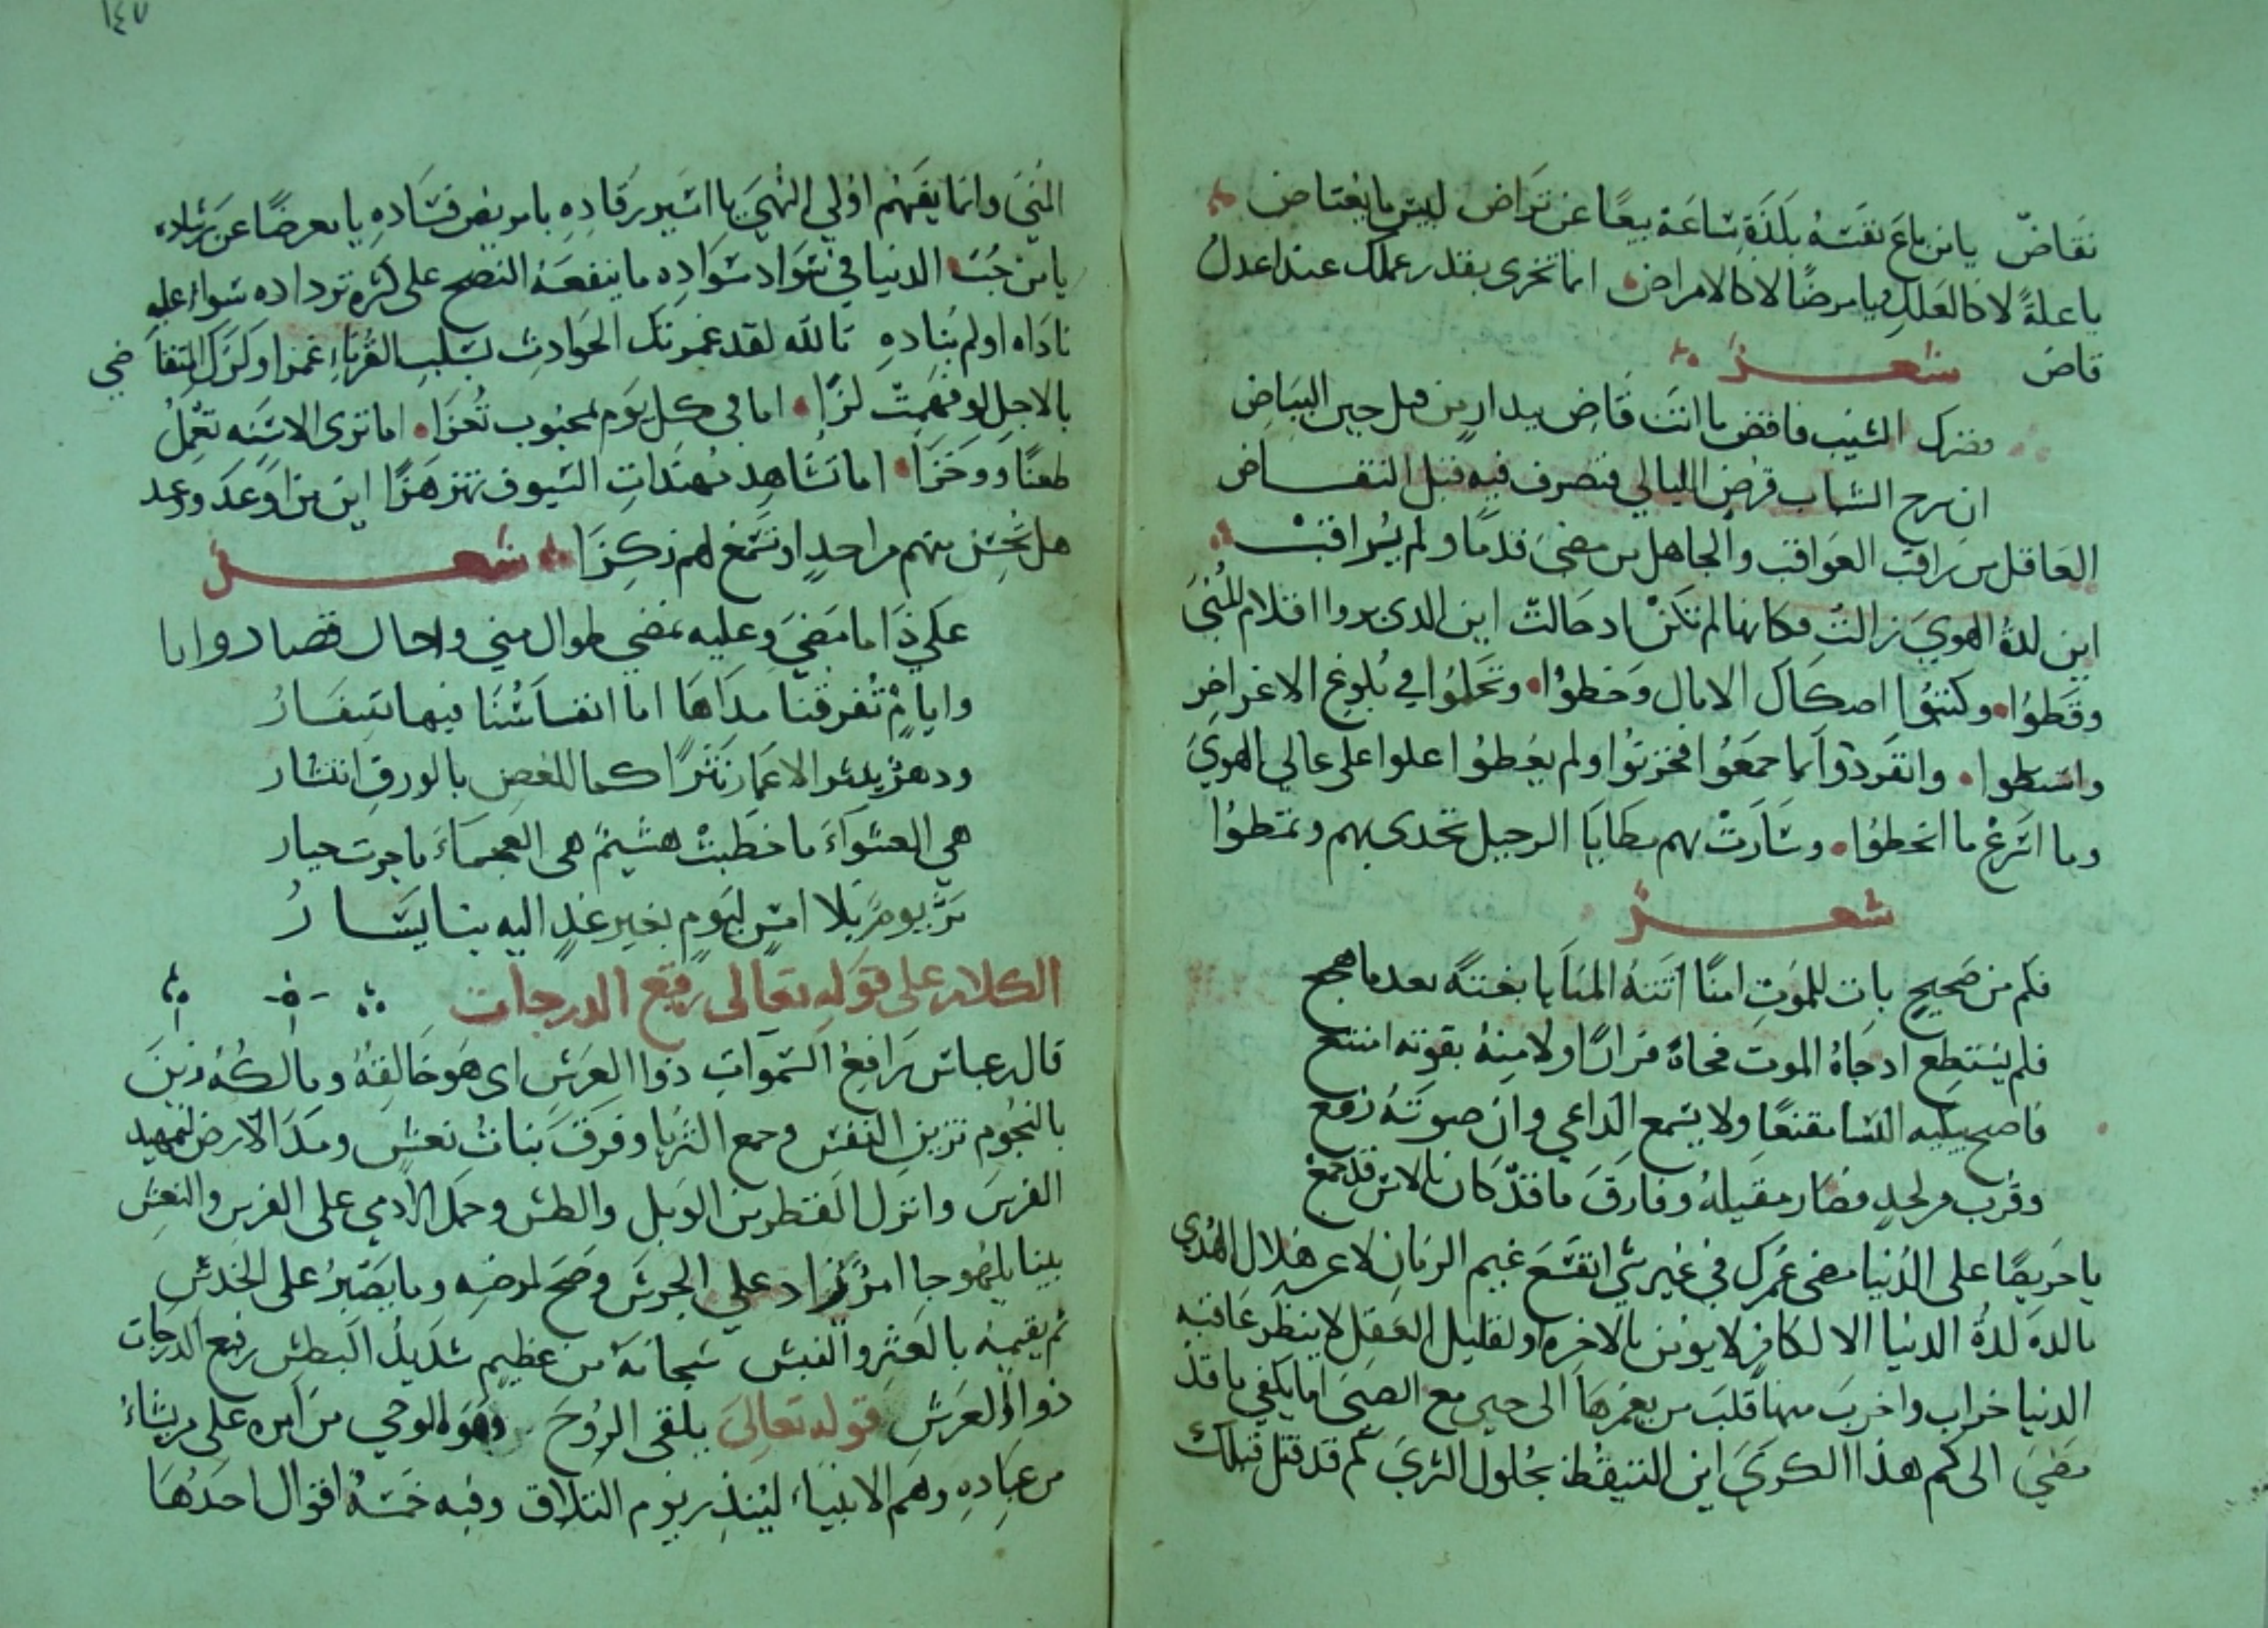 نقاضّ يا من باع نفسَهُ بلذّةِ سَاعَة بيعًا عن تراض لبيس ما يعتاض
يا علةً لا كالعلل ويا مرضًا لا كالامراض انما تجزى بقدر عملك عند اعدل
قاض شعر
حضرك الشيب فاقض ما انت قاض بدار من قبل حين البياض
ان سرح الشباب قرض الليالي فتصرف فيه قبل التقاض
العَاقل من راقب العَواقب والجاهل من مضى قدمًا ولم يُراقب
اين لذة الهوى زالت فكانها لم تكن اذ حالت اين الذين بروا اقلام المُنى
وقَطوُا وكتبُوا اصكاك الامال وخطوُا وتحَلوُا في بُلوغ الاغراض
واشتطوا وانفَردوُا بما جمعَوُا فخزنوُا ولم يعُطوُا علوا على عالي الهوى
وما اسَرعْ ما انحطوُا وسَارَتْ بهم مطايَا الرحيل تخدى بهم وتمطوُا
شعر
فكم من صَحيحٍ بات للموَتِ امنًا اتَتهُ المنَايا بغتةً بعد ما هجع
فلم يسَتطع اذ جَاهُ الموت فجاة فرارًا ولا منهُ بقوته امتنع
فاصبح تبكيه النسا مقنعًا ولا يسَمع الداعي وان صوتَهُ رفع
وقُرب من لحدٍ فصَار مقيلهُ وفارقَ ما قدّ كان بالامس قد جمعْ
يا حَريصًا على الدُنيا مضى عُمرك في غير شي انقشَع غيم الزمَانِ لا عن هلال الهُدى
ما لذه لذةُ الدنيا الا لكافرٍ لا يومن بالاخره او لقليل العَقل لا ينظر عَاقبه
الدنيا خراب واخربَ منها قلبَ من يعمرهَا الى متى مع الصبى اما يكفي ما قد
مضَى الى كم هذا الكرى اين التيقظ لحُلول الثرى كم قد قتل قبلك
١٤٧
المُنى وانما يفَهم اوُلي النُهى يا اسَير رقادِهِ يا مريض فسَادهِ يا معرضًا عن رشاده
يا من حُبّ الدنيا في سَوَاد سَوَادِه ما ينفعَهُ النصح على كثرة ترداده سَواء عليه
نادَاه او لم يُنادهِ تالله لقد غمزتك الحوَادث بسَلبِ القُرناءِ غمزا ولزك التقاضي
بالاجل لو فهَمِت لزّا اما في كل يوَم لمحبوب تُعزا اما ترى الاسَنه تعْمل
طعنًا ووخزا اما تشَاهِد مهندَاتِ السُيوف تهتز هزًا اين من اوَعدَ ووعد
هل تُحِسُ منهم من احدٍ او تسَمع لهم رِكزَا شعر
على ذا ما مَضىَ وعليه نمضي طوال منى واجال قصار
وايامٌ تُفرقنا مدَاهَا اما انفاسُنَا فيها سِفَارُ
ودهرٌ ينثر الاعمَار نَثرًا كما للغصن بالورقِ انتشار
هي العشوَاءَ ما خَطبتْ هشَيمٌ هى العَجماءَ ما جرت جبار
تمرُّ يومَ بلا امسٍ ليوَم بغير غدٍ اليه بنا يُسَارُ
الكلام على قوَله تعالى رفيع الدرجات
قال بن عباسَ رَافعُ السَموَاتِ ذوُا العَرَشِ اى هوَ خالقِهُ ومالكهُ زينَ
بالنجُوم تزيينِ النقشَ وجمع الثريا وفرّقَ بنات نعشٍ ومدَ الارض لتمهيد
الفرشَ وانزل القَطر من الوَبل والطش وحمَل الادمى على الفرسِ والنعش
بينا يلهوُ جا امرٌ زاد على الجرشَ وضج لمرضه وما يصَبرُ على الخدش
ثم يقيمه بالعَثر والنبش سَبحانهُ من عظيم شَديدُ البطش رفيع الدرجات
ذوا العَرَشِ قوله تعالىَ يلقى الرُوحَ وهَوَ الوحي من امره على من يشاءُ
من عبَادِهِ وهم الانبياءَ ليُنذِر يَوم التلاق وفيه خمَسةُ اقوال احدُهَا